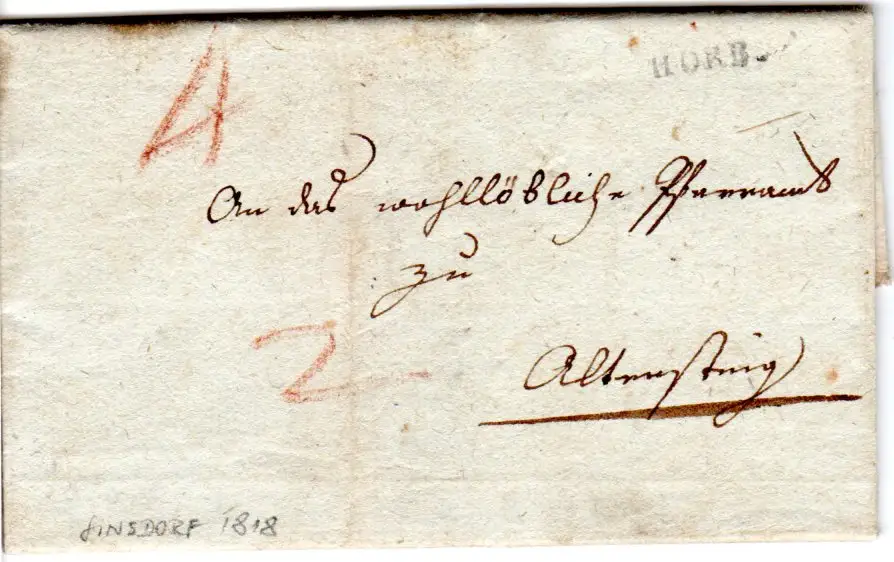 HORB.
4
An das wohllöbliche Pfarramt
zu
2
Altensteig
SINSDORF 1818